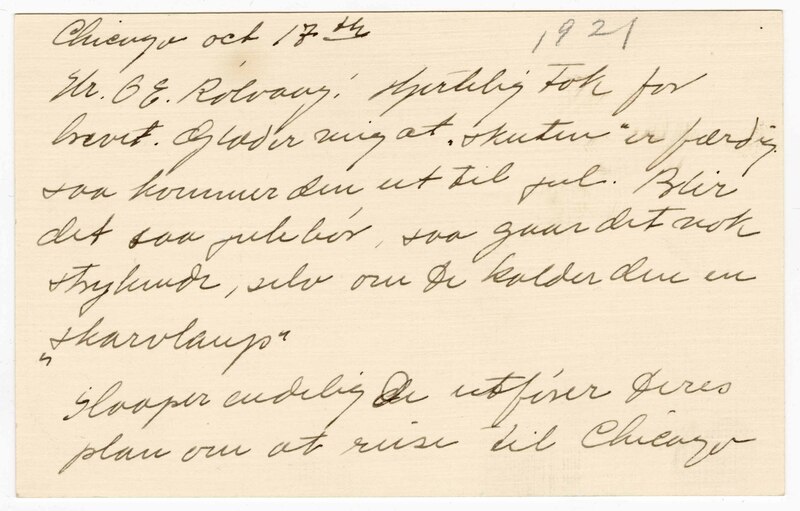 Chicago oct 17th 1921
Hr. O E. Rölvaag! Hjertelig Tak for
brevet. Glæder mig at „skuten" er færdig
saa kommer den ut til jul. Blir
det saa julebör, saa gaar det nok
strykende, selv om De kalder den en
„skarvlaup"
Haaper endelig De utförer Deres
plan om at reise til Chicago